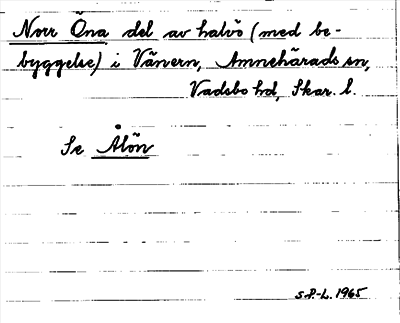 Norr Öna del av halvö (med be-
byggelse) i Vänern, Amnehärads sn,
Vadsbo hd, Skar. l.
Se Ålön
S.P-L. 1965